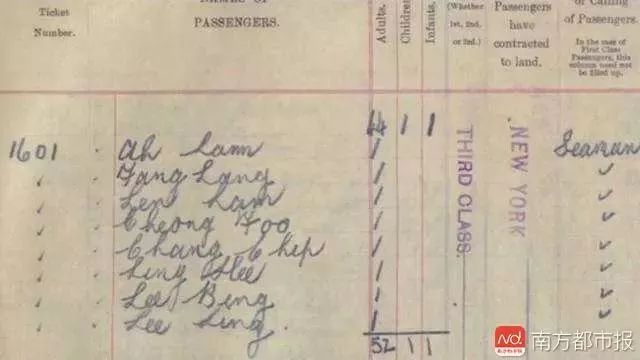 Ticket Number.
NAMES OF PASSENGERS.
Adults.
Children
Infants.
(Whether 1st, 2nd, or 3rd.)
Passengers have contracted to land.
or Calling of Passengers.
In the case of First Class Passengers, this column need not be filled up.
44 1 1
1601 Ah Lam 1 Seaman
✓ Fang Lang 1 ✓
✓ Len Lam 1 ✓
✓ Cheong Foo 1 ✓
✓ Chang Chip 1 ✓
✓ Ling Hee 1 ✓
✓ Lee Bing 1 ✓
✓ Lee Ling. 1 ✓
THIRD CLASS.
NEW YORK
52 1 1
南方都市报